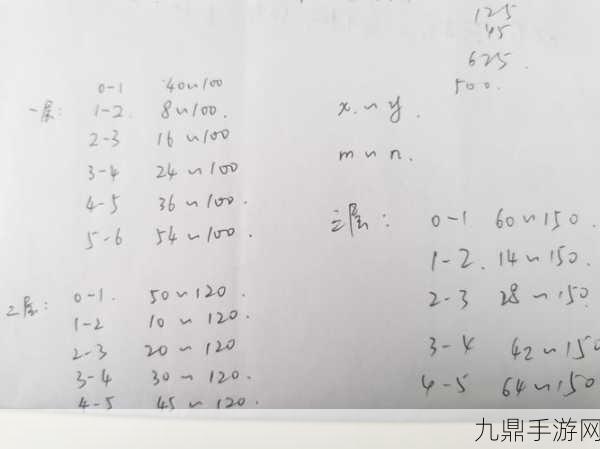 125
45
625
500.
一层:
0-1 40~100
1-2. 8~100.
2-3 16~100
3-4 24~100
4-5 36~100.
5-6 54~100.
x~y.
m~n.
二层:
0-1. 50~120.
1-2 10~120.
2-3 20~120
3-4 30~120.
4-5 45~120.
三层:
0-1 60~150.
1-2. 14~150.
2-3 28~150.
3-4 42~150
4-5 64~150
九鼎手游网